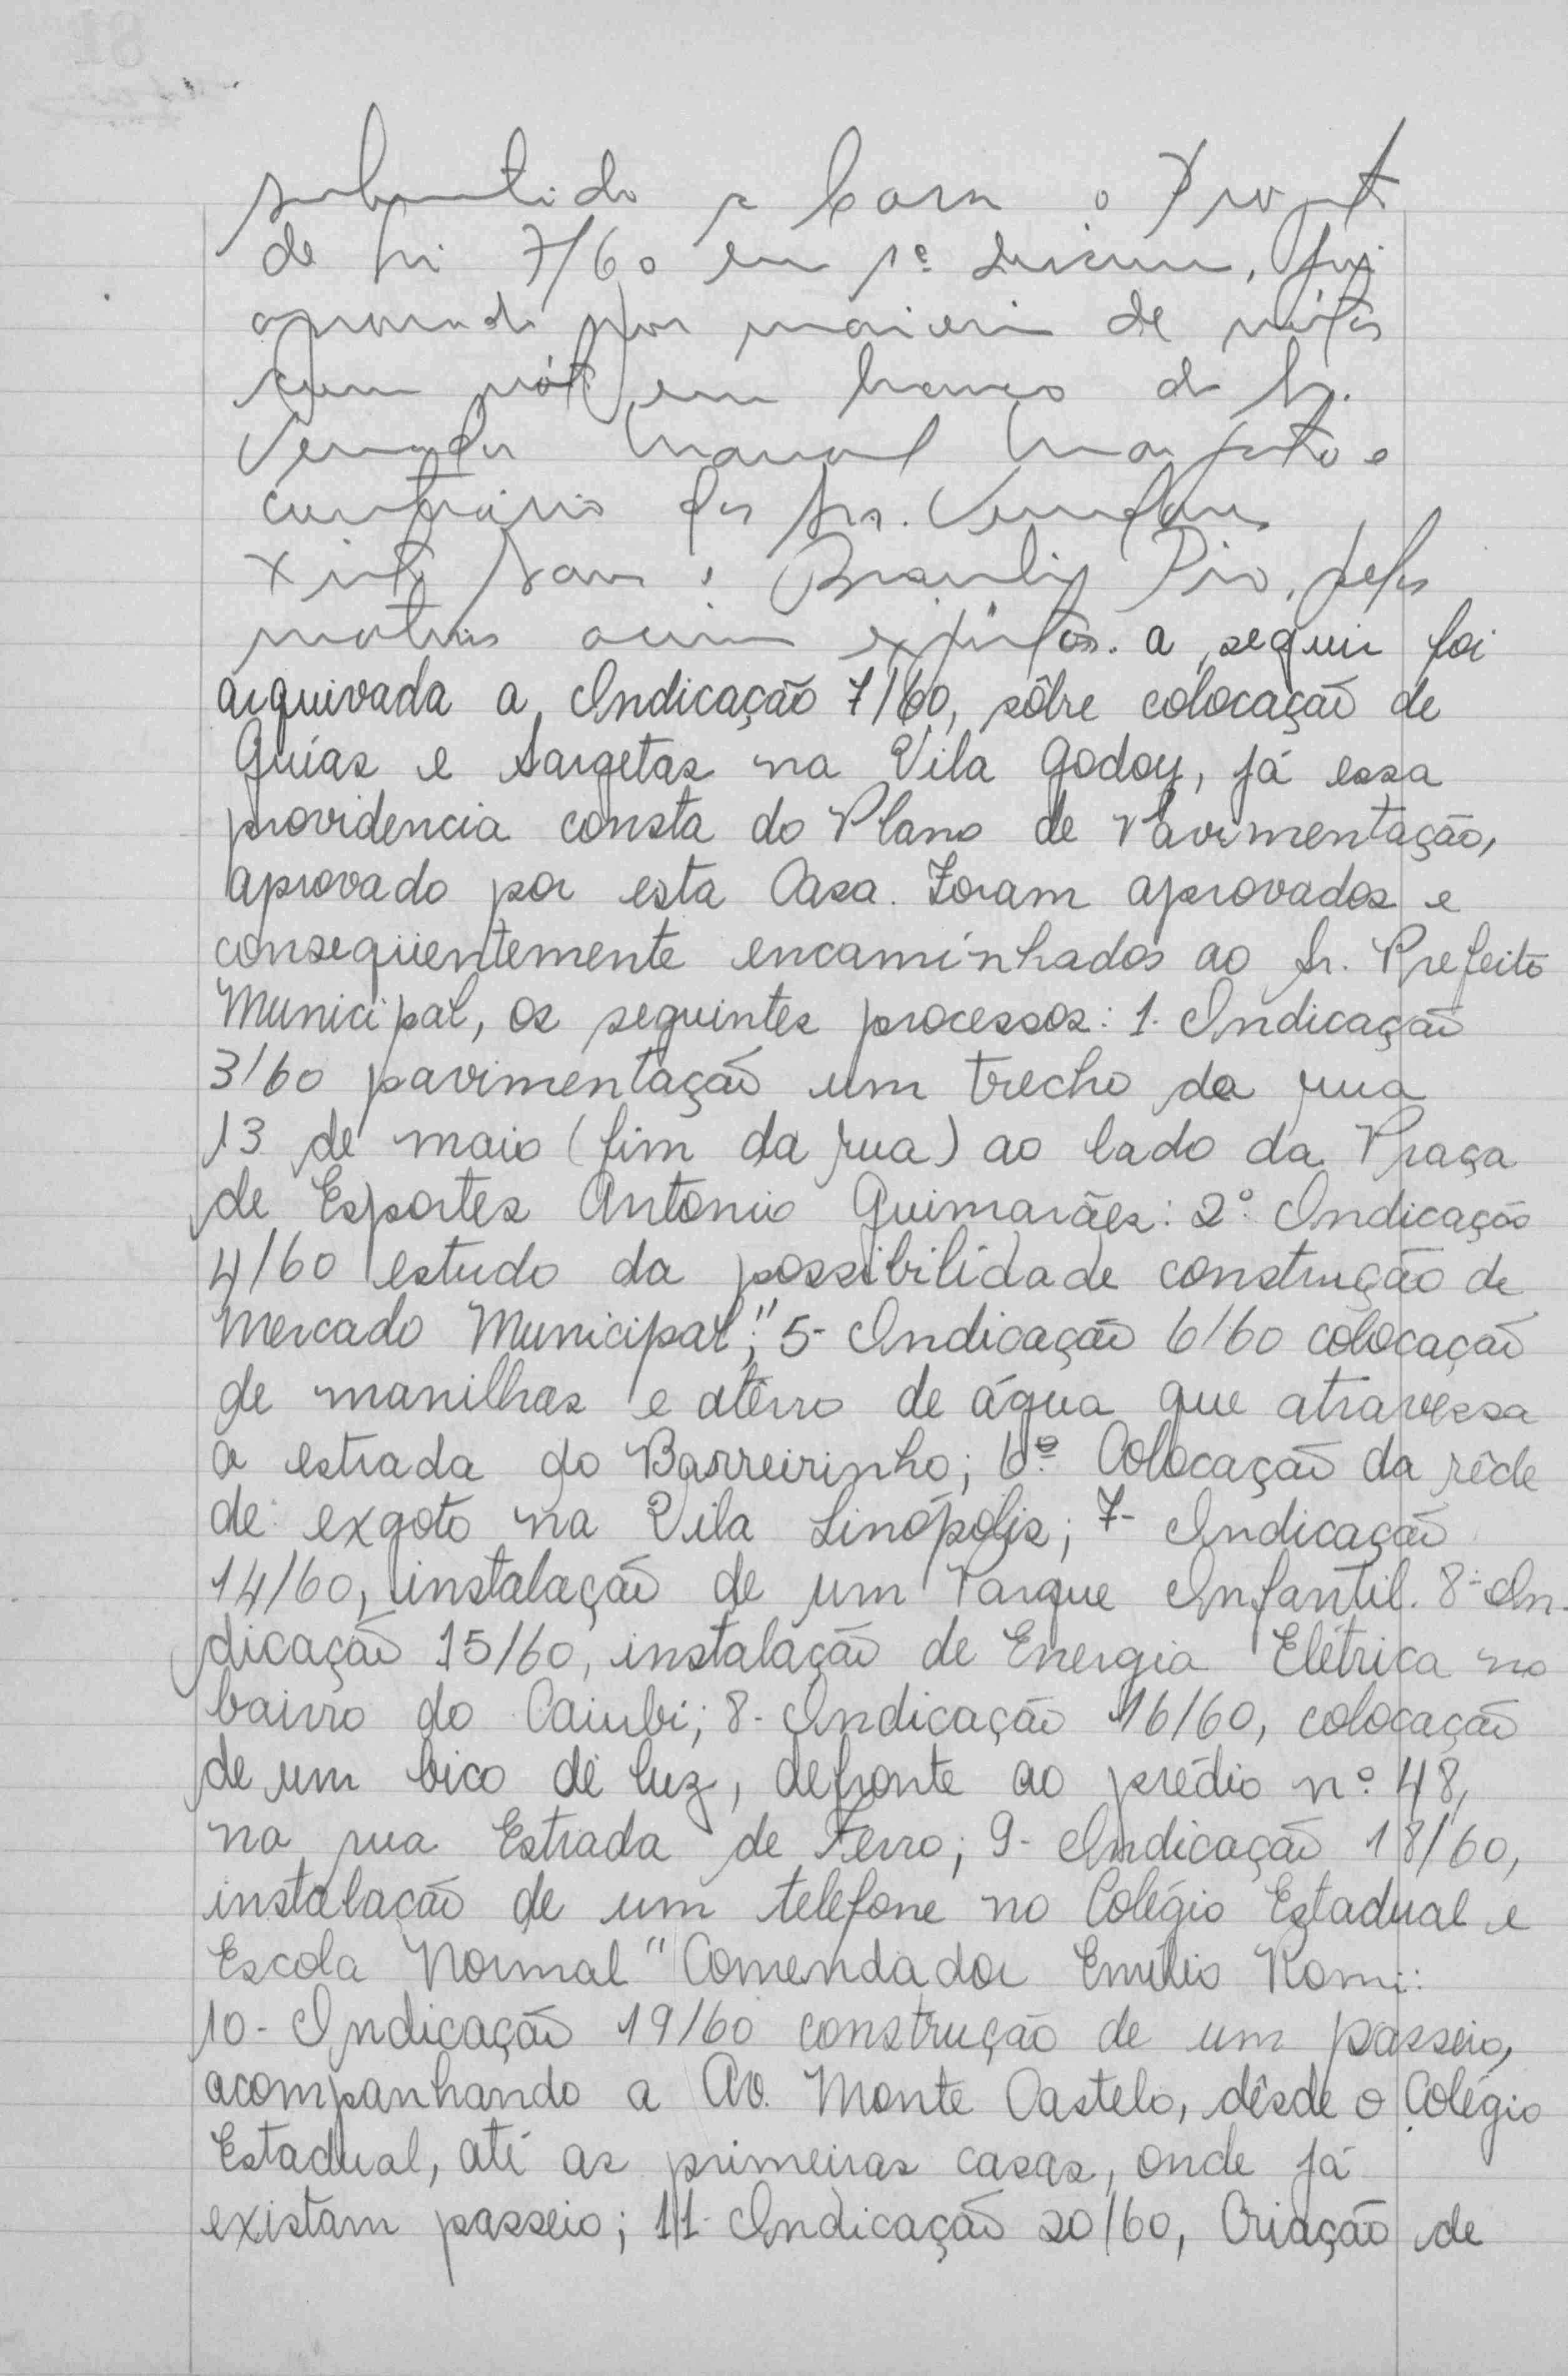 submetido a Casa o Projeto
de lei 7/60 em 1ª discussão, foi
aprovado por maioria de vótos
com vóto em branco do Sr.
Vereador Manoel
contrário dos Srs. Vereadores
e Braulio Pio, pelos
motivos acima expóstos. a seguir foi
arquivada a Indicação 7/60, sôbre colocação de
Guias e Sargetas na Vila Godoy, já essa
providencia consta do Plano de Pavimentação,
aprovado por esta Casa. Foram aprovados e
conseqüentemente encaminhados ao Sr. Prefeito
Municipal, os seguintes processos: 1. Indicação
3/60 pavimentação um trecho da rua
13 de maio (fim da rua) ao lado da Praça
de Esportes Antonio Guimarães: 2º Indicação
4/60 estudo da possibilidade construção de
Mercado Municipal;" 5- Indicação 6/60 colocação
de manilhas e atêrro de água que atravessa
a estrada do Barreirinho; 6º Colocação da rêde
de exgoto na Vila Linópolis; 7- Indicação
14/60, instalação de um Parque Infantil. 8- In-
dicação 15/60, instalação de Energia Elétrica no
bairro do Caiubi; 8- Indicação 16/60, colocação
de um bico de luz, defronte ao prédio nº 48,
na rua Estrada de Ferro; 9- Indicação 18/60,
instalação de um telefone no Colégio Estadual e
Escola Normal "Comendador Emílio Romi:
10- Indicação 19/60 construção de um passeio,
acompanhando a Av. Monte Castelo, dêsde o Colégio
Estadual, até as primeiras casas, onde já
existam passeio; 11- Indicação 20/60, Criação de